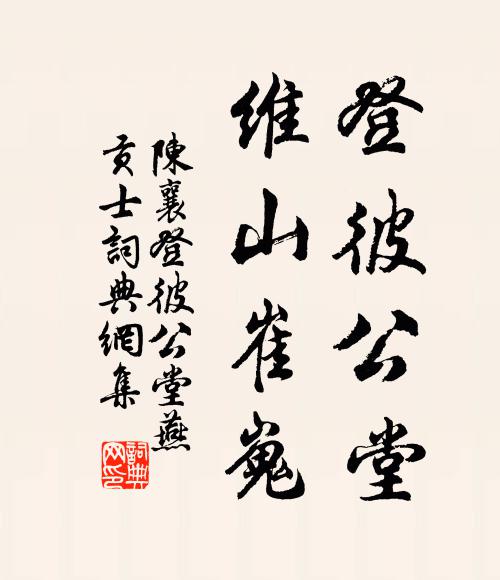 登彼公堂
維山崔嵬
陳襄登彼公堂燕
貢士詞典網集
詞典
网印